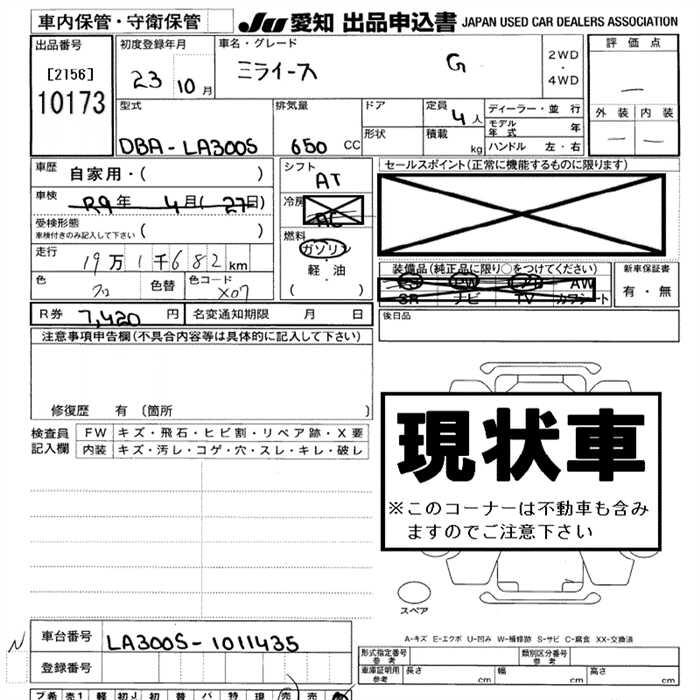 車内保管・守衛保管
JU 愛知 出品申込書 JAPAN USED CAR DEALERS ASSOCIATION
出品番号 [2156] 10173
初度登録年月 23 10月
車名・グレード ミライース G
2WD・4WD
評価点 —
外装 — 内装 —
型式 DBA-LA300S
排気量 650 CC
ドア
形状
定員 4人
積載 kg
ディーラー・並行
モデル年式 年
ハンドル 左・右
車歴 自家用・( )
車検 R9年 4月(27日)
受検形態
車検付きのみ記入して下さい ( )
走行 19万1千682km
色 クロ 色替 色コード X07
シフト AT
冷房 AC
燃料 ガソリン・軽油
( )
セールスポイント(正常に機能するものに限ります)
装備品(純正品に限り○をつけてください)
SR ナビ TV カワシート
AW
新車保証書 有・無
R券 7,420円 名変通知期限 月 日
後日品
注意事項申告欄(不具合内容等は具体的に記入して下さい)
修復歴 有 〔箇所 〕
検査員記入欄
FW キズ・飛石・ヒビ割・リペア跡・X要
内装 キズ・汚レ・コゲ・穴・スレ・キレ・破レ
現状車
※このコーナーは不動車も含み
ますのでご注意下さい
スペア
A-キズ E-エクボ U-凹み W-補修跡 S-サビ C-腐食 XX-交換済
N
車台番号 LA300S-1011435
登録番号
形式指定番号 参考
類別区分番号 参考
車庫証明用 参考 長さ cm 幅 cm 高さ cm